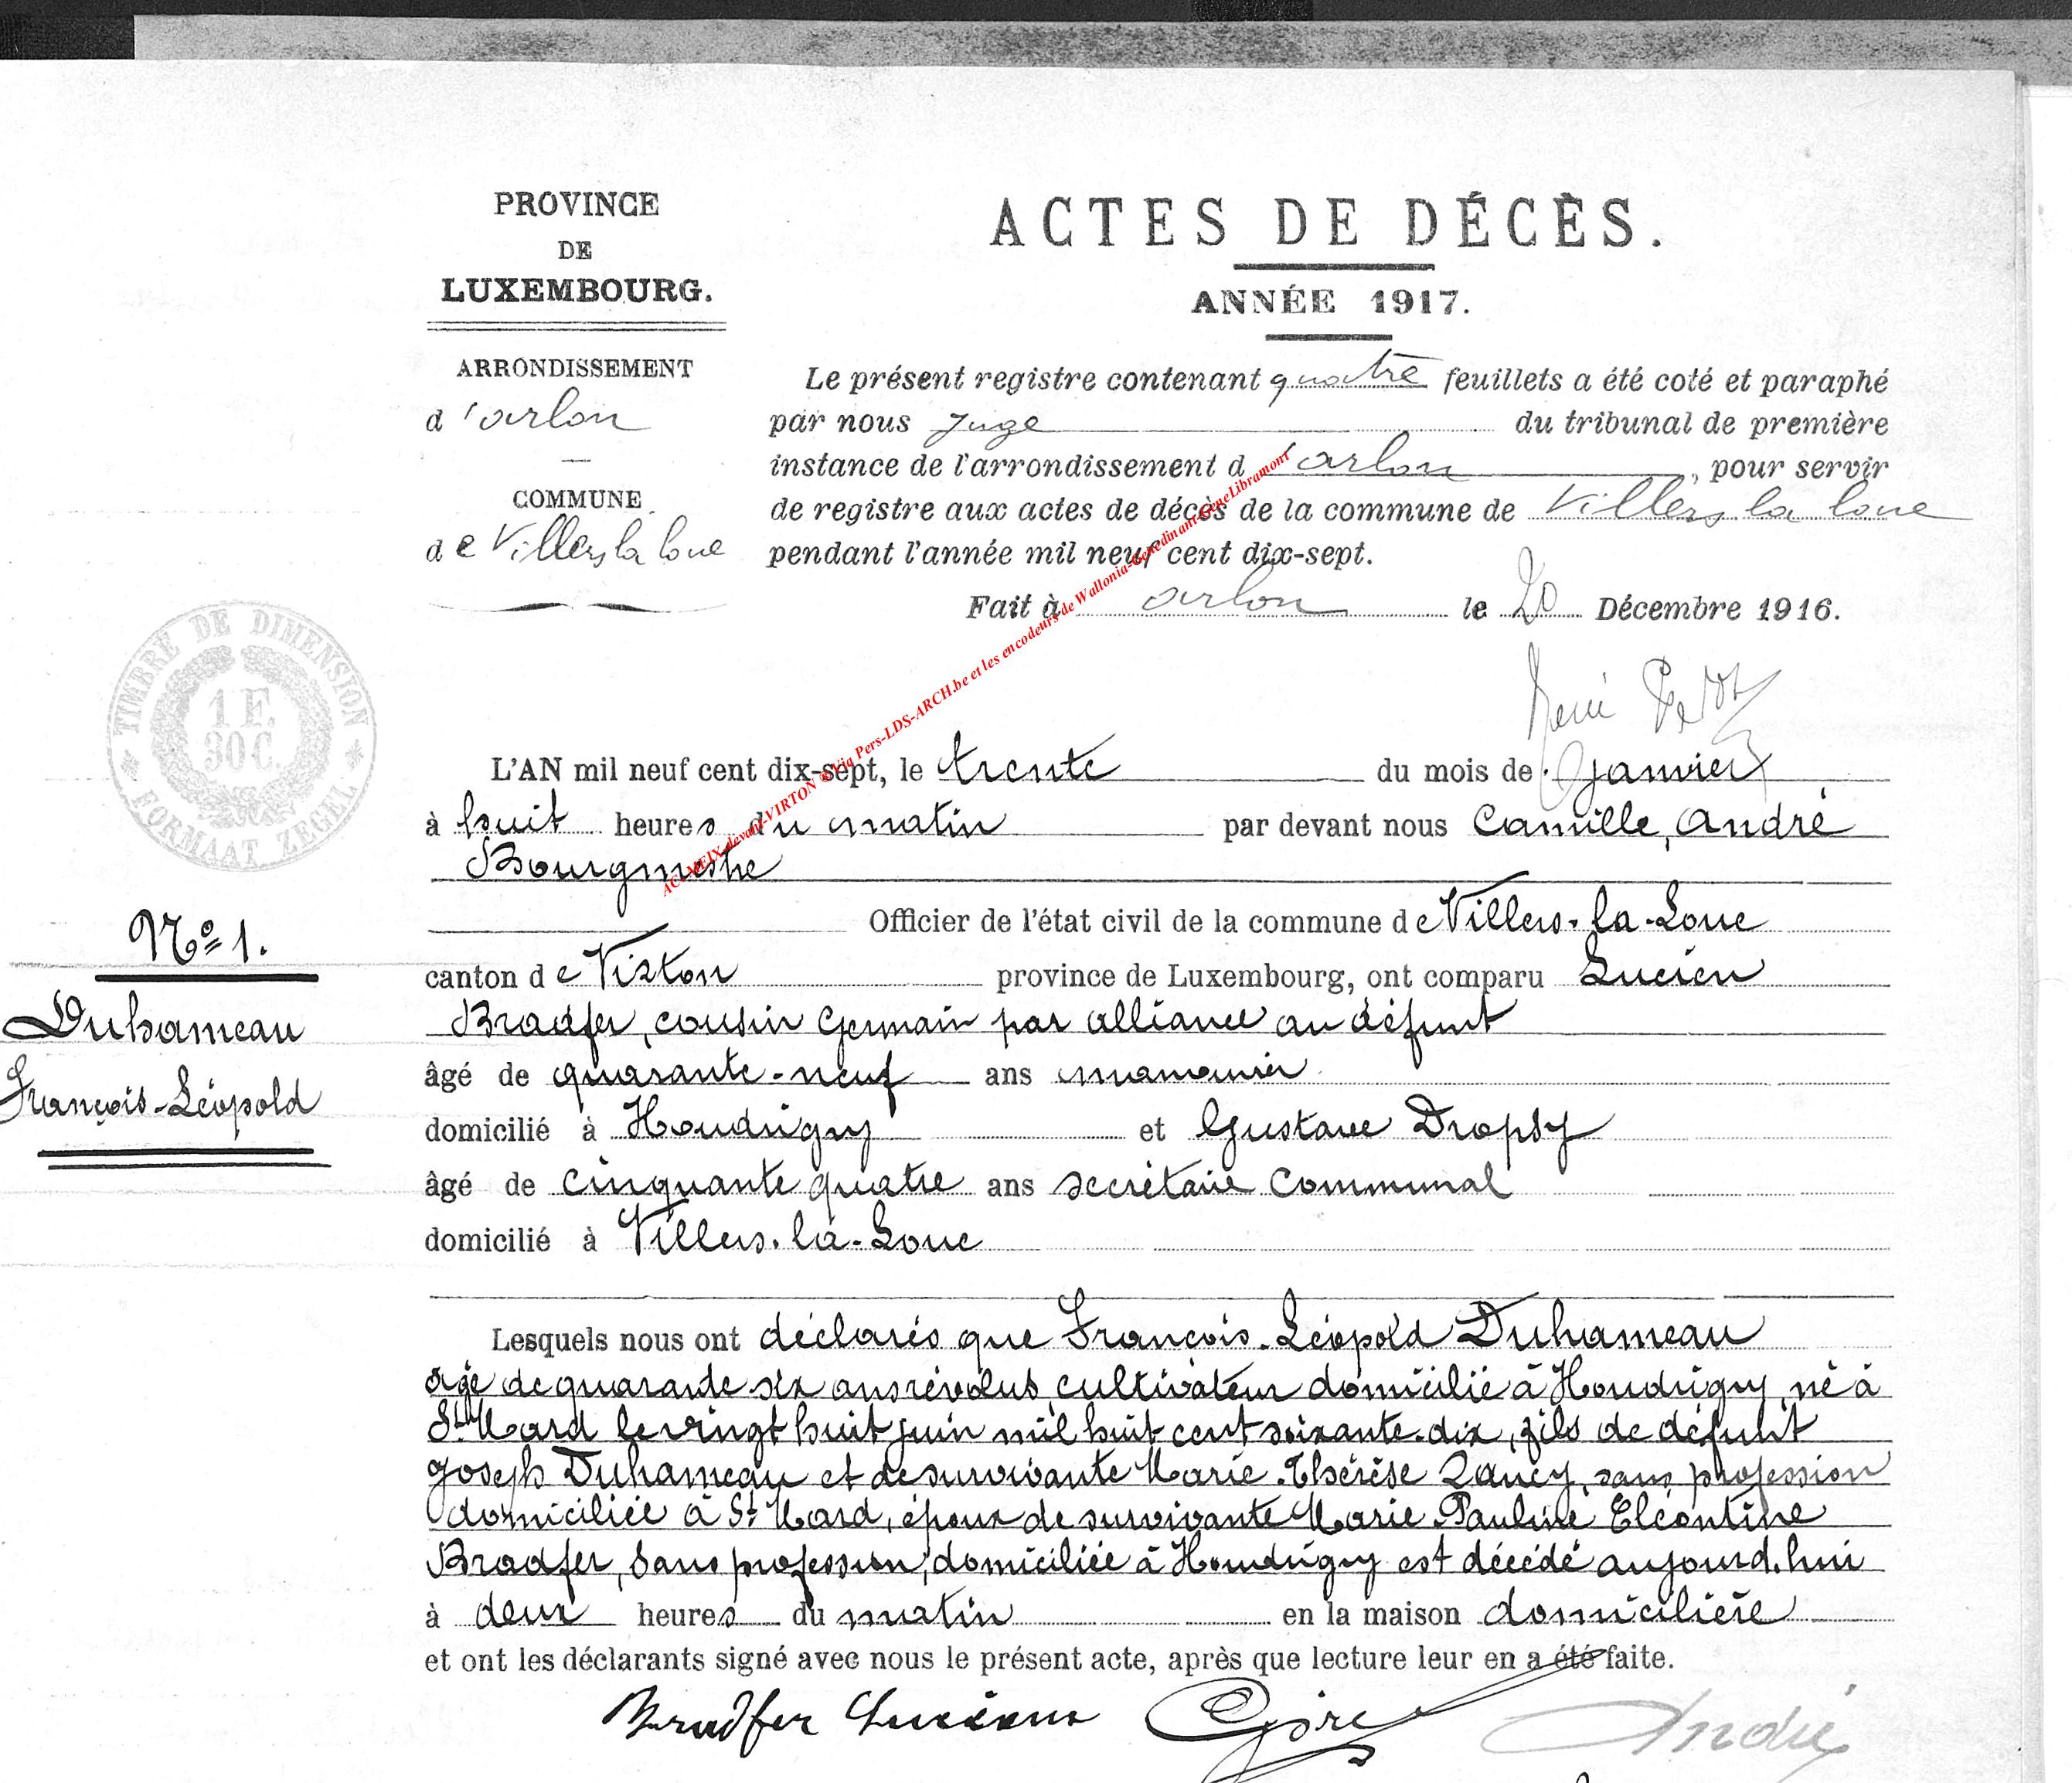 PROVINCE
DE
LUXEMBOURG.
ARRONDISSEMENT
d'arlon
COMMUNE
de Villers la loue
ACTES DE DÉCÈS.
ANNÉE 1917.
Le présent registre contenant quatre feuillets a été coté et paraphé
par nous Juge du tribunal de première
instance de l'arrondissement d'arlon, pour servir
de registre aux actes de décès de la commune de Villers la loue
pendant l'année mil neuf cent dix-sept.
Fait à arlon le 20 Décembre 1916.
René
TIMBRE DE DIMENSION
1 F.
30 C.
FORMAAT ZEGEL
AC-MEIX-devant-VIRTON Via Pers-LDS-ARCH.be et les encodeurs de Wallonia-Genedinant-GeneLibramont
L'AN mil neuf cent dix-sept, le trente du mois de janvier
à huit heures du matin par devant nous Camille, André
Bourgmestre
Officier de l'état civil de la commune de Villers-la-Loue
canton de Virton province de Luxembourg, ont comparu Lucien
Bradfer, cousin Germain par alliance au défunt
âgé de quarante-neuf ans
domicilié à Houdrigny et Gustave Dropsy
âgé de cinquante quatre ans secrétaire communal
domicilié à Villers-la-Loue
N° 1.
Duhameau
François-Léopold
Lesquels nous ont déclarés que François-Léopold Duhameau
âgé de quarante-six ans révolus, cultivateur domicilié à Houdrigny, né à
St Mard le vingt huit juin mil huit cent soixante-dix, fils de défunt
Joseph Duhameau et de survivante Marie-Thérèse sans profession
domiciliée à St Mard, époux de survivante Marie-Pauline Eléontine
Bradfer, sans profession, domiciliée à Houdrigny est décédé aujourd'hui
à deux heures du matin en la maison domicilière
et ont les déclarants signé avec nous le présent acte, après que lecture leur en a été faite.
Bradfer Lucien
André